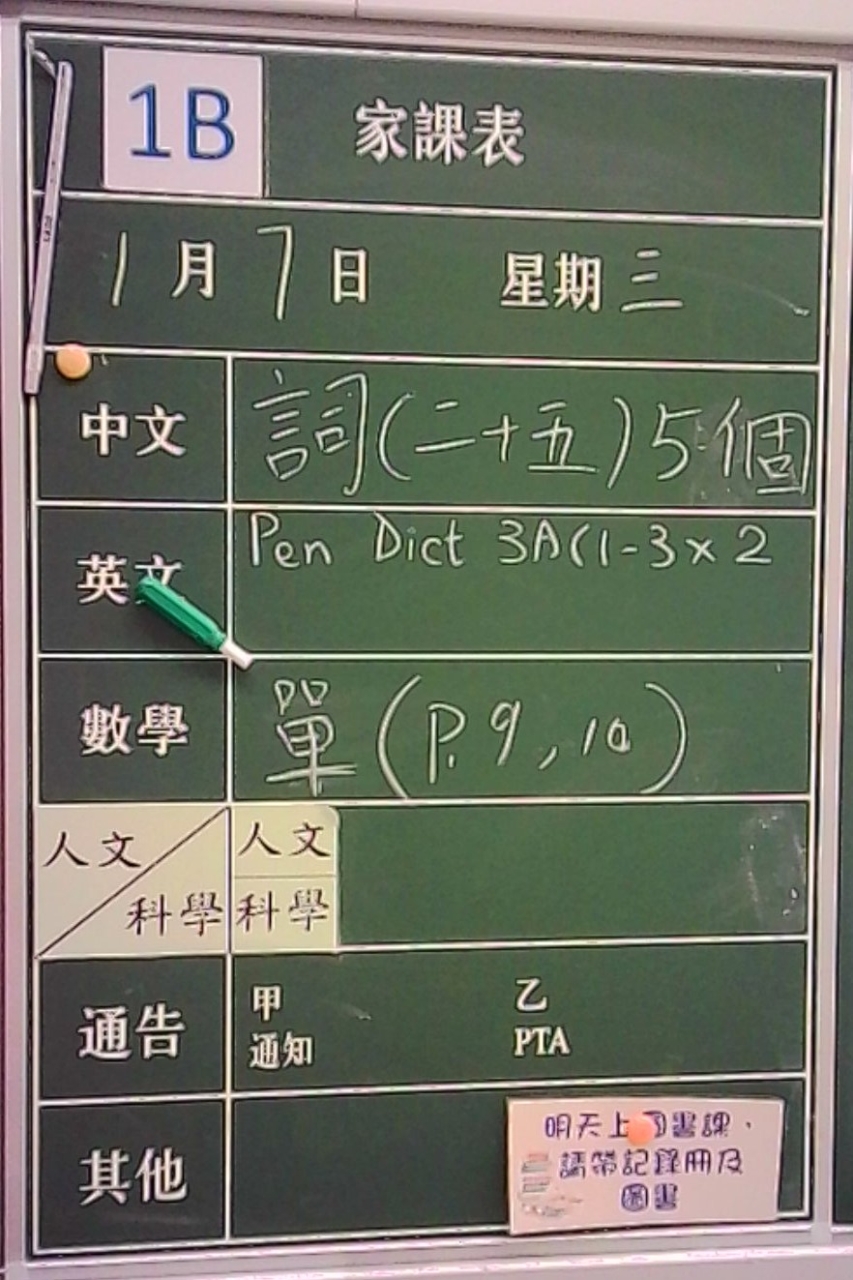 1B 家課表
1月7日 星期三
中文 詞(二十五)5個
英文 Pen Dict 3A(1-3×2
數學 單(P.9,10)
人文 人文
科學 科學
通告 甲 乙
通知 PTA
其他
明天上圖書課、
請帶記錄冊及
圖書